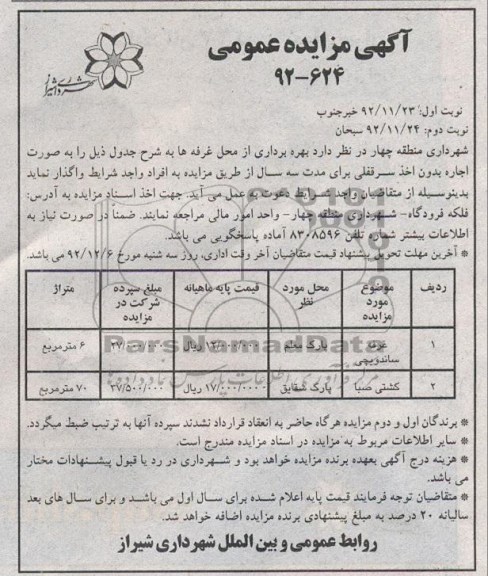 آگهی مزایده عمومی
۹۲-۶۲۴
شهرداری شیراز
نوبت اول: ۹۲/۱۱/۲۳ خبرجنوب
نوبت دوم: ۹۲/۱۱/۲۴ سبحان
شهرداری منطقه چهار در نظر دارد بهره برداری از محل غرفه ها به شرح جدول ذیل را به صورت
اجاره بدون اخذ سرقفلی برای مدت سه سال از طریق مزایده به افراد واجد شرایط واگذار نماید
بدینوسیله از متقاضیان واجد شرایط دعوت به عمل می آید. جهت اخذ اسناد مزایده به آدرس:
فلکه فرودگاه- شهرداری منطقه چهار- واحد امور مالی مراجعه نمایند. ضمناً در صورت نیاز به
اطلاعات بیشتر شماره تلفن ۸۳۰۸۵۹۶ آماده پاسخگویی می باشد.
* آخرین مهلت تحویل پیشنهاد قیمت متقاضیان آخر وقت اداری، روز سه شنبه مورخ ۹۲/۱۲/۶ می باشد.
ردیف موضوع مورد مزایده محل مورد نظر قیمت پایه ماهیانه مبلغ سپرده شرکت در مزایده متراژ
۱ غرفه ساندویچی پارک معلم ۱۲/۰۰۰/۰۰۰ ریال ۶ مترمربع
۲ کشتی صبا پارک شقایق ۱۷/۰۰۰/۰۰۰۰ ریال ۳۷/۵۰۰/۰۰۰ ۷۰ مترمربع
ParsNamadData
* برندگان اول و دوم مزایده هرگاه حاضر به انعقاد قرارداد نشدند سپرده آنها به ترتیب ضبط میگردد.
* سایر اطلاعات مربوط به مزایده در اسناد مزایده مندرج است.
* هزینه درج آگهی بعهده برنده مزایده خواهد بود و شهرداری در رد یا قبول پیشنهادات مختار
می باشد.
* متقاضیان توجه فرمایند قیمت پایه اعلام شده برای سال اول می باشد و برای سال های بعد
سالیانه ۲۰ درصد به مبلغ پیشنهادی برنده مزایده اضافه خواهد شد.
روابط عمومی و بین الملل شهرداری شیراز